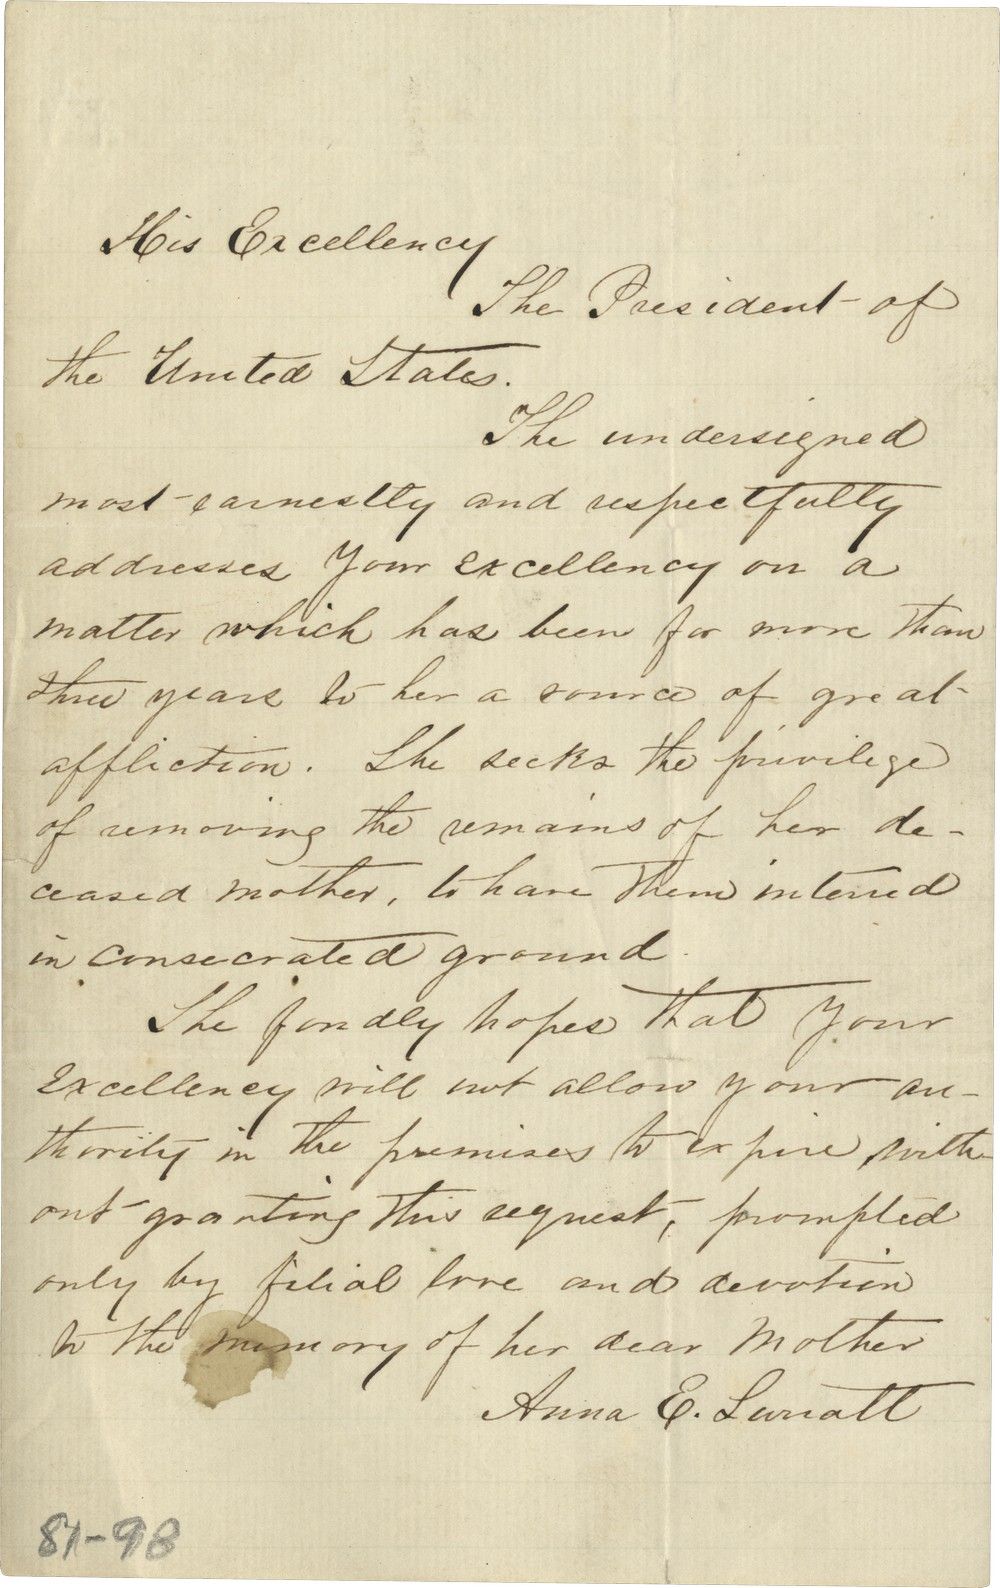 His Excellency
The President of
the United States.
The undersigned
most earnestly and respectfully
addresses Your Excellency on a
matter which has been for more than
three years to her a source of great
affliction. She seeks the privilege
of removing the remains of her de-
ceased mother, to have them interred
in consecrated ground.
She fondly hopes that Your
Excellency will not allow your au-
thority in the premises to expire with-
out granting this request, prompted
only by filial love and devotion
to the memory of her dear Mother
Anna E. Surratt
81-98